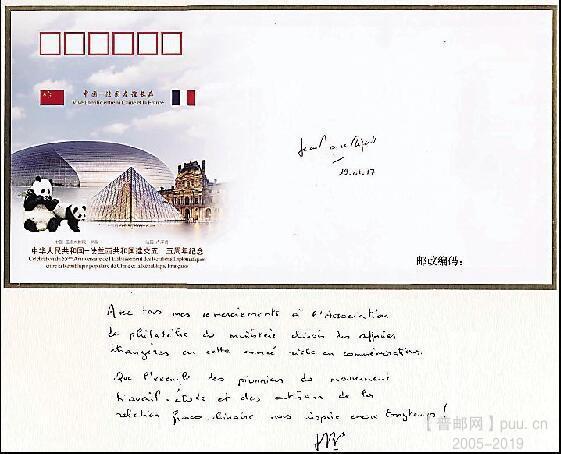 中国-法国友谊长存
中华人民共和国-法兰西共和国建交五十五周年纪念
邮政编码：
19.11.17
Avec tous mes remerciements à l'Association
de philatélie du ministère chinois des affaires
étrangères en cette année riche en commémorations.
Que l'exemple des pionniers du mouvement
travail-étude et des artisans de la
relation franco-chinoise nous inspire encore longtemps !
【普邮网】puu.cn
2005-2019